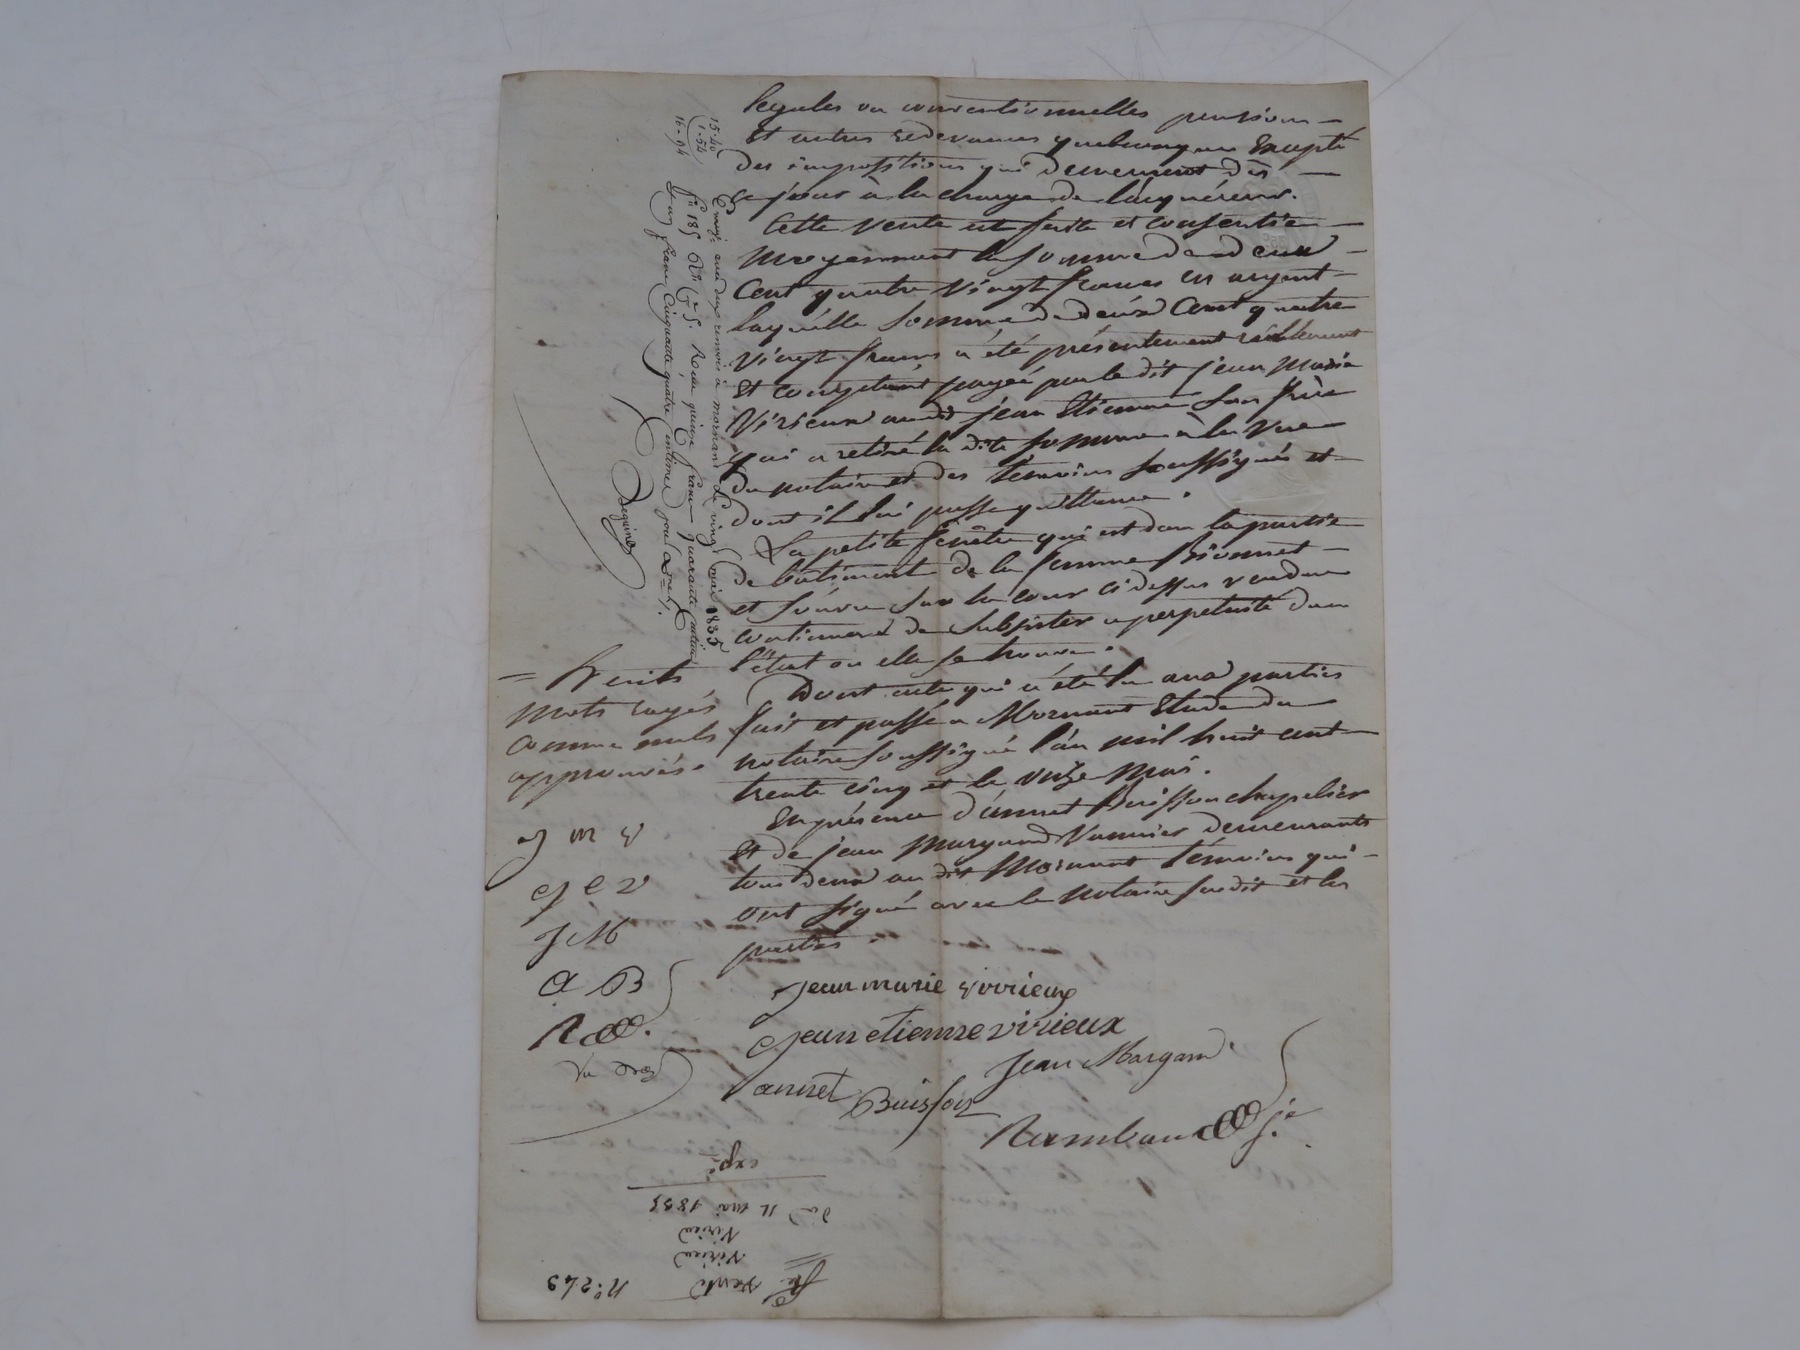 légales ou conventionnelles pension
et autres redevances quelconques Excepté
des impositions qui demeurent dès
ce jour à la charge de l'acquéreur.
Cette vente est faite et consentie
moyennant la somme de deux
Cent quatre Vingt francs en argent
laquelle somme de deux Cent quatre
Vingt francs a été présentement réellement
et comptant payée par le dit jean Marie
Virieux au dit jean Etienne son frère
qui a retiré la dite somme à la vue
du notaire et des témoins soussignés et
dont il lui passe quittance.
La petite fenêtre qui est dans la partie
de bâtiment de la femme
et s'ouvre sur la cour ci dessus vendue
continuera de subsister a perpetuité dans
l'état ou elle se trouve.
Dont acte qui a été lu aux parties
fait et passé a Mornant Etude du
notaire soussigné l'an mil huit cent
trente cinq et le onze Mai.
En présence d'annet Buisson chapelier
et de jean Margand Vannier demeurants
tous deux au dit Mornant témoins qui
ont signé avec le notaire susdit et les
parties.
mots rayés
comme nuls
approuvés.
j m v
j e v
J M
a B
jean marie virieux
jean etienne virieux
Jean Margand
annet Buisson
Rambaud
15.40
1.54
16.94
Enreg. avec deux renvois à mornant Le vingt mai 1835
f° 185 Reçu quinze francs quarante centimes
un franc cinquante quatre centimes pour
N° 249
Vente
Virieux
Virieux
du 11 mai 1835
expé